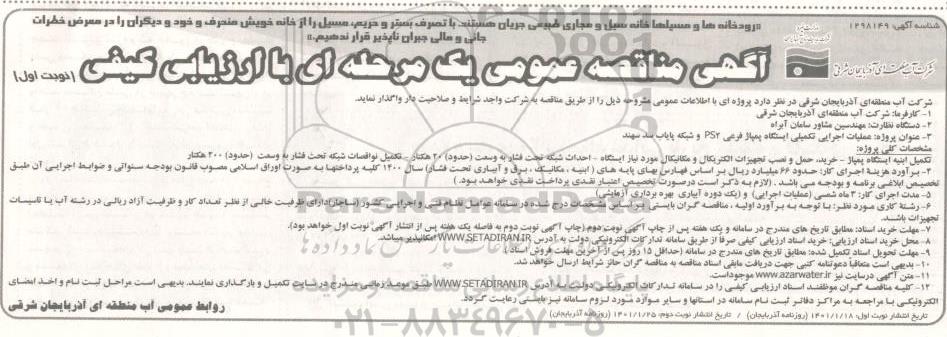 شناسه آگهی: ۱۲۹۸۱۴۹
«رودخانه ها و مسیلها خانه سیل و مجاری طبیعی جریان هستند با تصرف بستر و حریم، مسیل را از خانه خویش منحرف و خود و دیگران را در معرض خطرات
جانی و مالی جبران ناپذیر قرار ندهیم.»
شرکت آب منطقه ای آذربایجان شرقی
آگهی مناقصه عمومی یک مرحله ای با ارزیابی کیفی (نوبت اول)
شرکت آب منطقه‌ای آذربایجان شرقی در نظر دارد پروژه ای با اطلاعات عمومی مشروحه ذیل را از طریق مناقصه به شرکت واجد شرایط و صلاحیت دار واگذار نماید.
۱- کارفرما: شرکت آب منطقه‌ای آذربایجان شرقی
۲- دستگاه نظارت: مهندسین مشاور سامان آبراه
۳- عنوان پروژه: عملیات اجرایی تکمیلی ایستگاه پمپاژ فرعی PS۲ و شبکه پایاب سد سهند
مشخصات کلی پروژه:
تکمیل ابنیه ایستگاه پمپاژ - خرید، حمل و نصب تجهیزات الکتریکال و مکانیکال مورد نیاز ایستگاه - احداث شبکه تحت فشار به وسعت (حدود) ۲۰ هکتار - تکمیل نواقصات شبکه تحت فشار به وسعت (حدود) ۲۰۰ هکتار
۴- برآورد هزینه اجرای کار: حدود ۶۶ میلیارد ریال بر اساس فهارس بهای پایه های (ابنیه، مکانیک، برق و آبیاری تحت فشار) سال ۱۴۰۰ کلیه پرداختها به صورت اوراق اسلامی مصوب قانون بودجه سنواتی و ضوابط اجرایی آن طبق
تخصیص ابلاغی برنامه و بودجه می باشد. (لازم به ذکر است درصورت تخصیص اعتبار نقدی پرداخت نقدی خواهد بود.)
۵- مدت اجرای کار: ۳ ماه شمسی (عملیات اجرایی) و (یک دوره آبیاری بهره برداری آزمایشی)
۶- رشته کاری مورد نظر: با توجه به برآورد اولیه، مناقصه گران بایستی بر اساس مشخصات درج شده در سامانه عوامل نظام فنی و اجرایی کشور (ساجار) دارای ظرفیت خالی از نظر تعداد کار و ظرفیت آزاد ریالی در رشته آب یا تاسیسات
تجهیزات باشند.
۷- مهلت خرید اسناد: مطابق تاریخ های مندرج در سامانه و یک هفته پس از چاپ آگهی نوبت دوم (چاپ آگهی نوبت دوم به فاصله یک هفته پس از انتشار آگهی نوبت اول خواهد بود).
۸- محل خرید اسناد ارزیابی: خرید اسناد ارزیابی کیفی صرفاً از طریق سامانه تدارکات الکترونیکی دولت به آدرس WWW.SETADIRAN.IR امکانپذیر میباشد.
۹- مهلت تحویل اسناد تکمیل شده: مطابق تاریخ های مندرج در سامانه (حداقل ۱۵ روز پس از آخرین مهلت فروش اسناد)
۱۰- بدیهی است متعاقباً دعوتنامه کتبی جهت دریافت مابقی اسناد مناقصه به مناقصه گران حائز شرایط ارسال خواهد شد.
۱۱- متن آگهی درسایت نیز www.azarwater.ir موجوداست.
۱۲- کلیه مناقصه گران موظفند اسناد ارزیابی کیفی را در سامانه تدارکات الکترونیکی دولت به آدرس WWW.SETADIRAN.IR طبق موعد زمانی مندرج در سایت تکمیل و بارگذاری نمایند. بدیهی است مراحل ثبت نام و اخذ امضای
الکترونیکی با مراجعه به مراکز دفاتر ثبت نام سامانه در استانها و سایر موارد مورد لزوم سامانه نیز بایستی رعایت گردد.
تاریخ انتشار نوبت اول: ۱۴۰۱/۱/۱۸ (روزنامه آذربایجان) / تاریخ انتشار نوبت دوم: ۱۴۰۱/۱/۲۵ (روزنامه آذربایجان)
روابط عمومی آب منطقه ای آذربایجان شرقی
ParsNamadData
۰۲۱-۸۸۳۴۹۶۷۰-۵